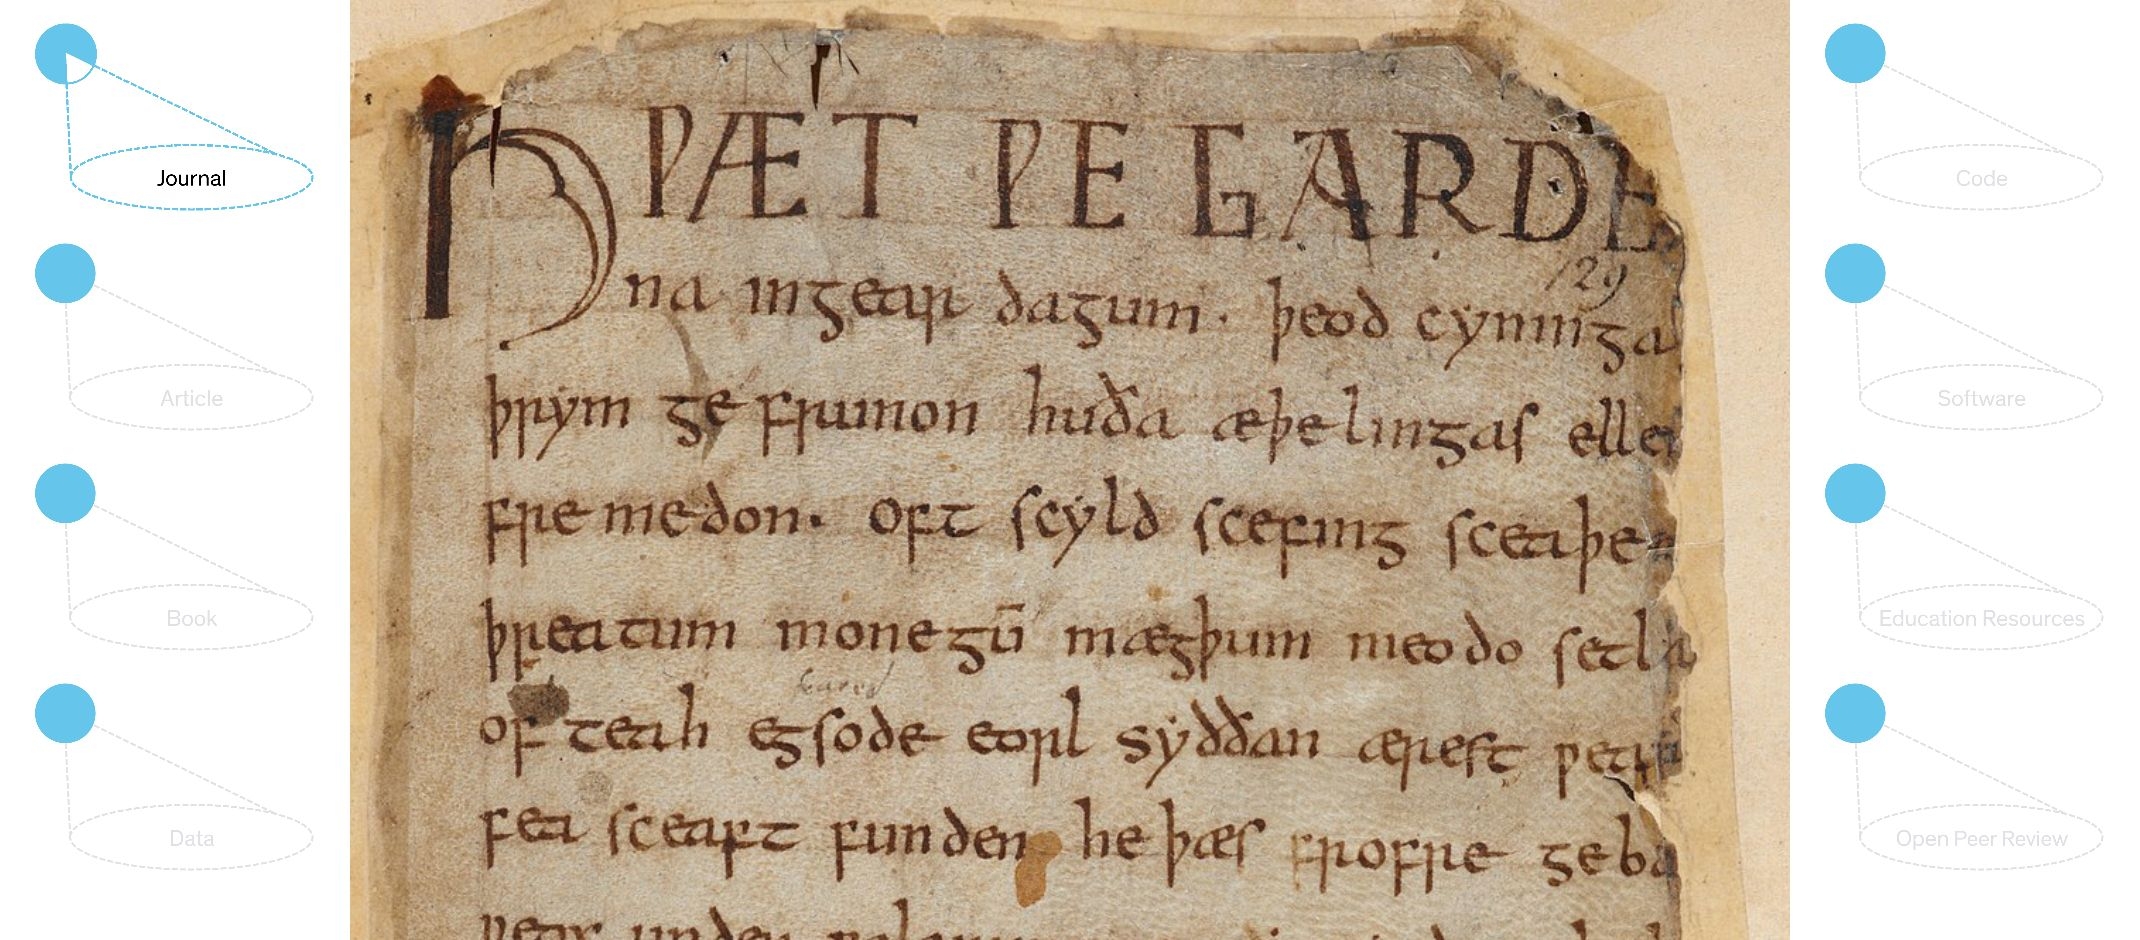 Journal
Article
Book
Data
HǷÆT ǷE GARDE
129
na ingear dagum. þeod cyninga
þrym ge frunon huða æþelingas elle
fremedon. oft scyld scefing sceaþe
þreatum monegū mægþum meodo setla
of teah egsode eorl syððan ærest ƿear
fea sceaft funden he þæs frofre geba
ƿeox under
Code
Software
Education Resources
Open Peer Review